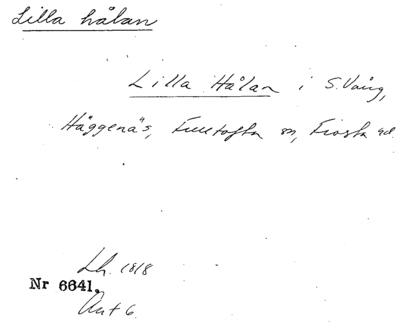 Lilla hålan
Lilla Hålan i S. Vång,
Häggenäs, Fulltofta sn, Frosta hd.
Lh. 1818
Nr 6641.
Akt 6.